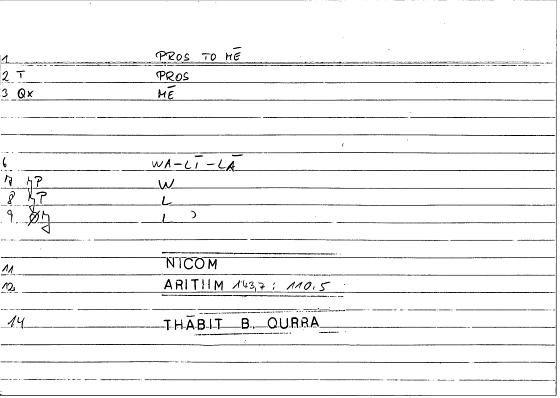 1 PROS TO MĒ
2 T PROS
3 Qx MĒ
6 WA-LĪ-LĀ
7 P W
8 P L
9. L
11 NICOM
12 ARITHM 143,7 : 110.5
14 THĀBIT B. QURRA